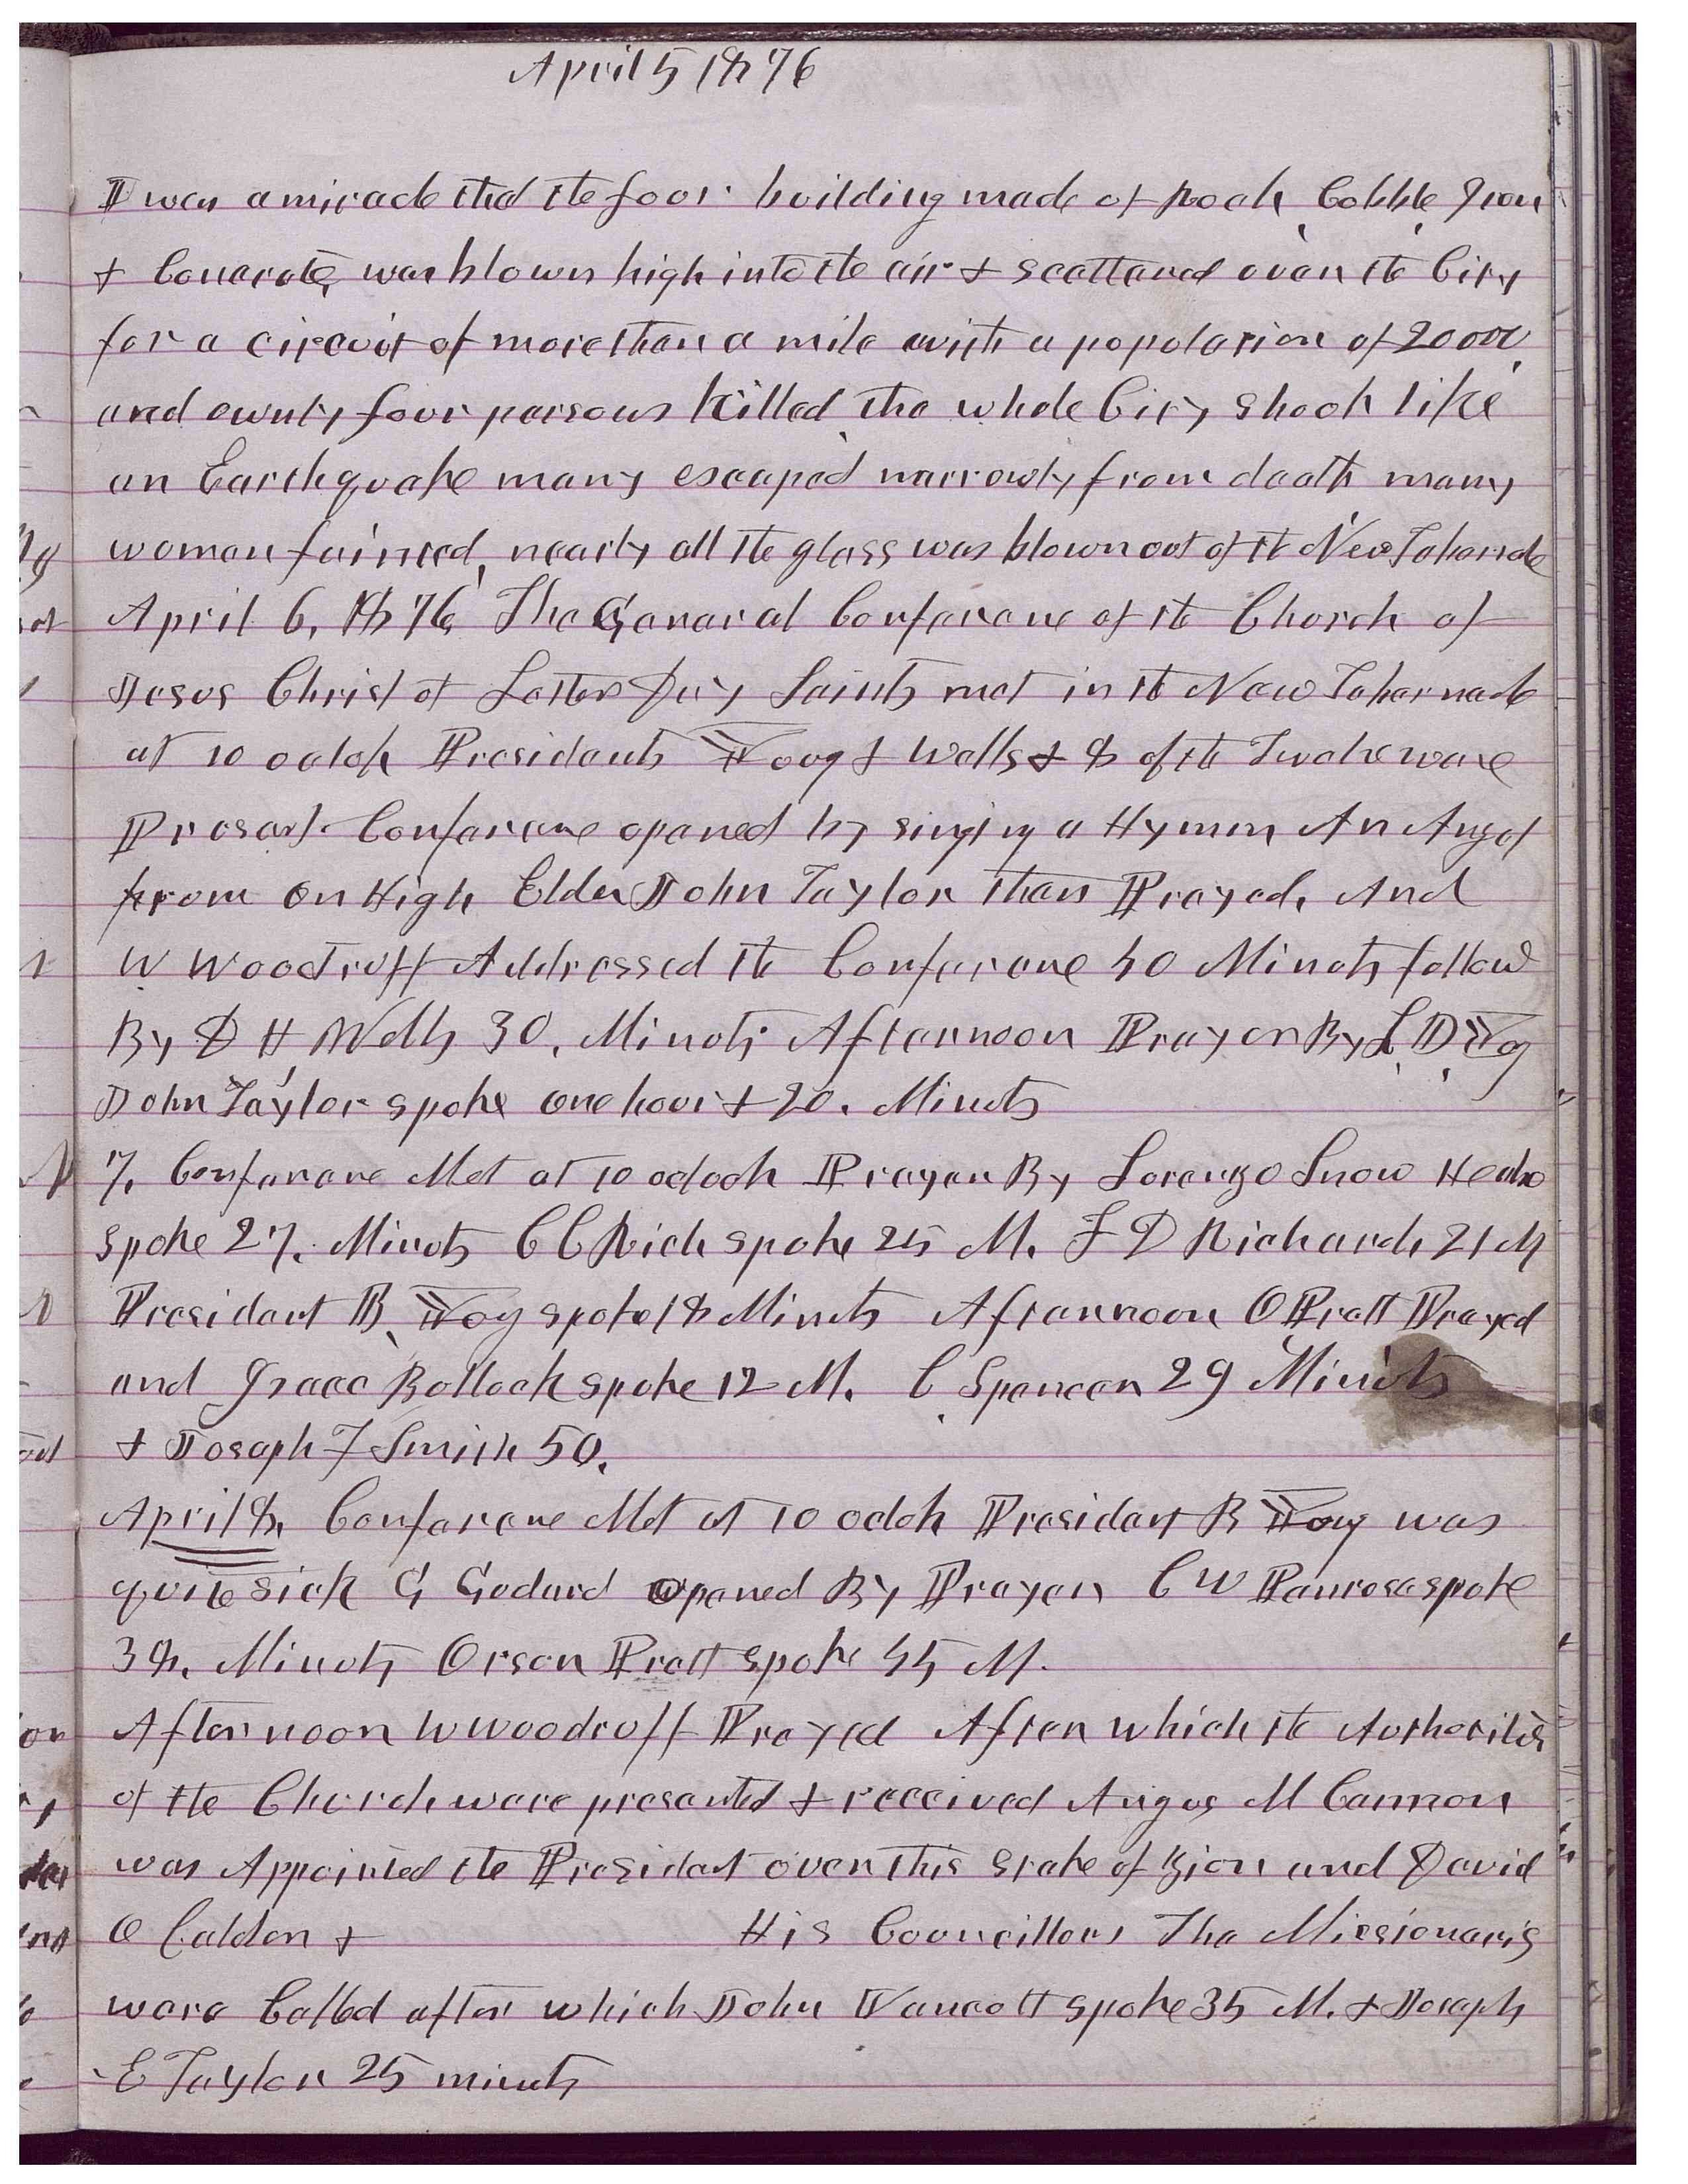 April 5 1876
It was a miracle that the four building made of Rock, Cobble, Iron
& Concrete, was blown high into the air & scattered over the City
for a circuit of more than a mile with a population of 20000,
and ownly four persons killed, the whole City shook like
an Earthquake many escaped narrowly from death many
woman fainted, nearly all the glass was blown out of the New Tabernacle
April 6, 1876, The General Conference of the Church of
Jesus Christ of Latter Day Saints met in the New Tabernacle
at 10 oclok Presidents Young & Wells & 8 of the Twelve ware
Present. Conference opened by singing a Hymn An Angel
from on High Elder John Taylor then Prayed, And
W Woodruff Addressed the Conference 40 Minuts follow'd
By D H Wells 30, Minuts Afternoon Prayer By L D Young
John Taylor spoke one hour & 20. Minuts
7, Conference Met at 10 oclock Prayer By Lorenzo Snow He also
spoke 27. Minuts C C Rich spoke 25 M. F D Richards 21 M
President B, Young spoke 18 Minuts Afternoon O Pratt Prayed
and Isaac Bullock spoke 12 M. C Spencer 29 Minuts
& Joseph F Smith 50.
April 8, Conference Met at 10 oclok President B Young was
quite sick G Godard opened By Prayer C W Penrose spoke
38, Minuts Orson Pratt spoke 45 M.
Afternoon W Woodruff Prayed After which the Authorities
of the Church ware presented & received Angus M Cannon
was Appointed the President over this Stake of Zion and David
O Calder & His Councillors The Missionaries
ware Called after which John Vancott spoke 35 M. & Joseph
E Taylor 25 minuts